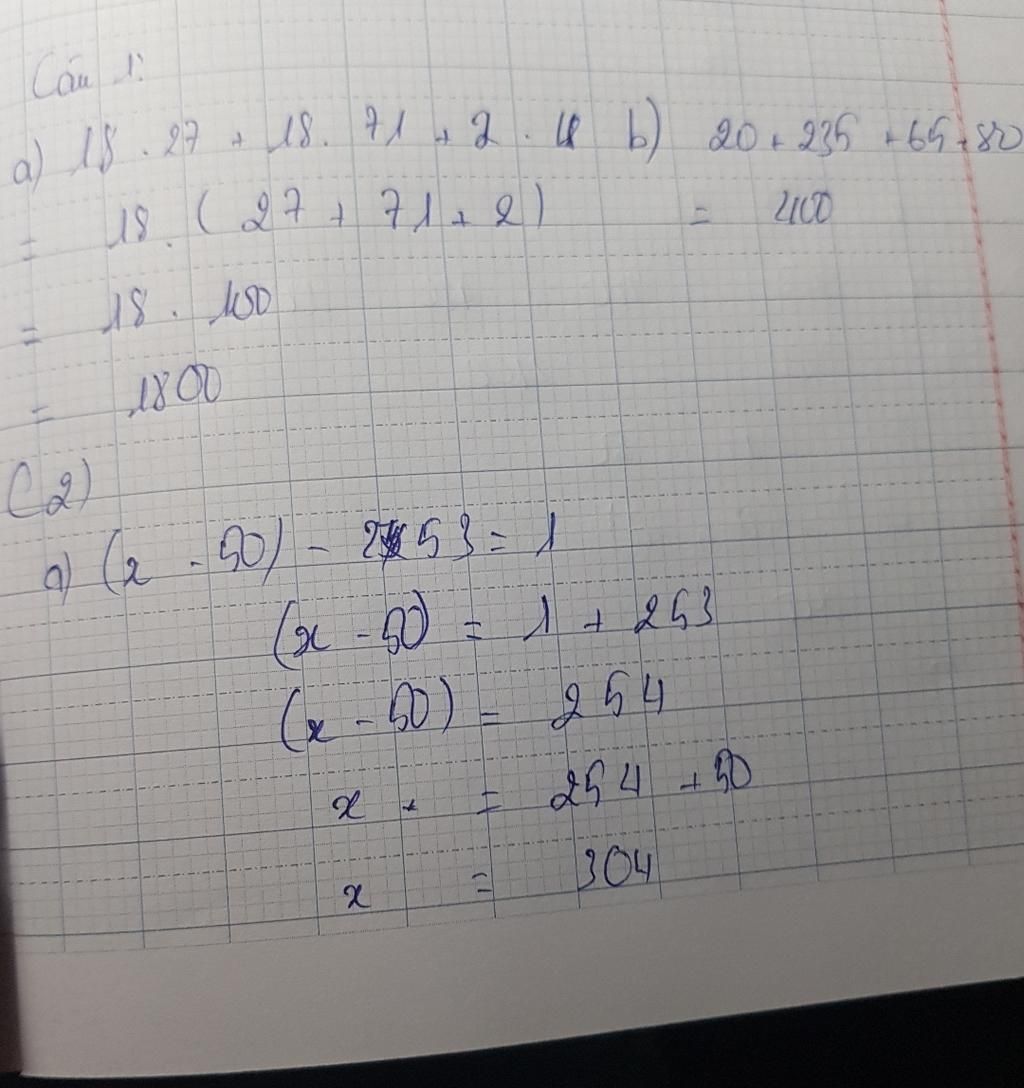 Câu 1:
a) 18 . 27 + 18 . 71 + 2 . 18 b) 20 + 235 + 65 + 80
= 18 . ( 27 + 71 + 2 ) = 400
= 18 . 100
= 1800
C2)
a) (x - 50) - 253 = 1
(x - 50) = 1 + 253
(x - 50) = 254
x = 254 + 50
x = 304